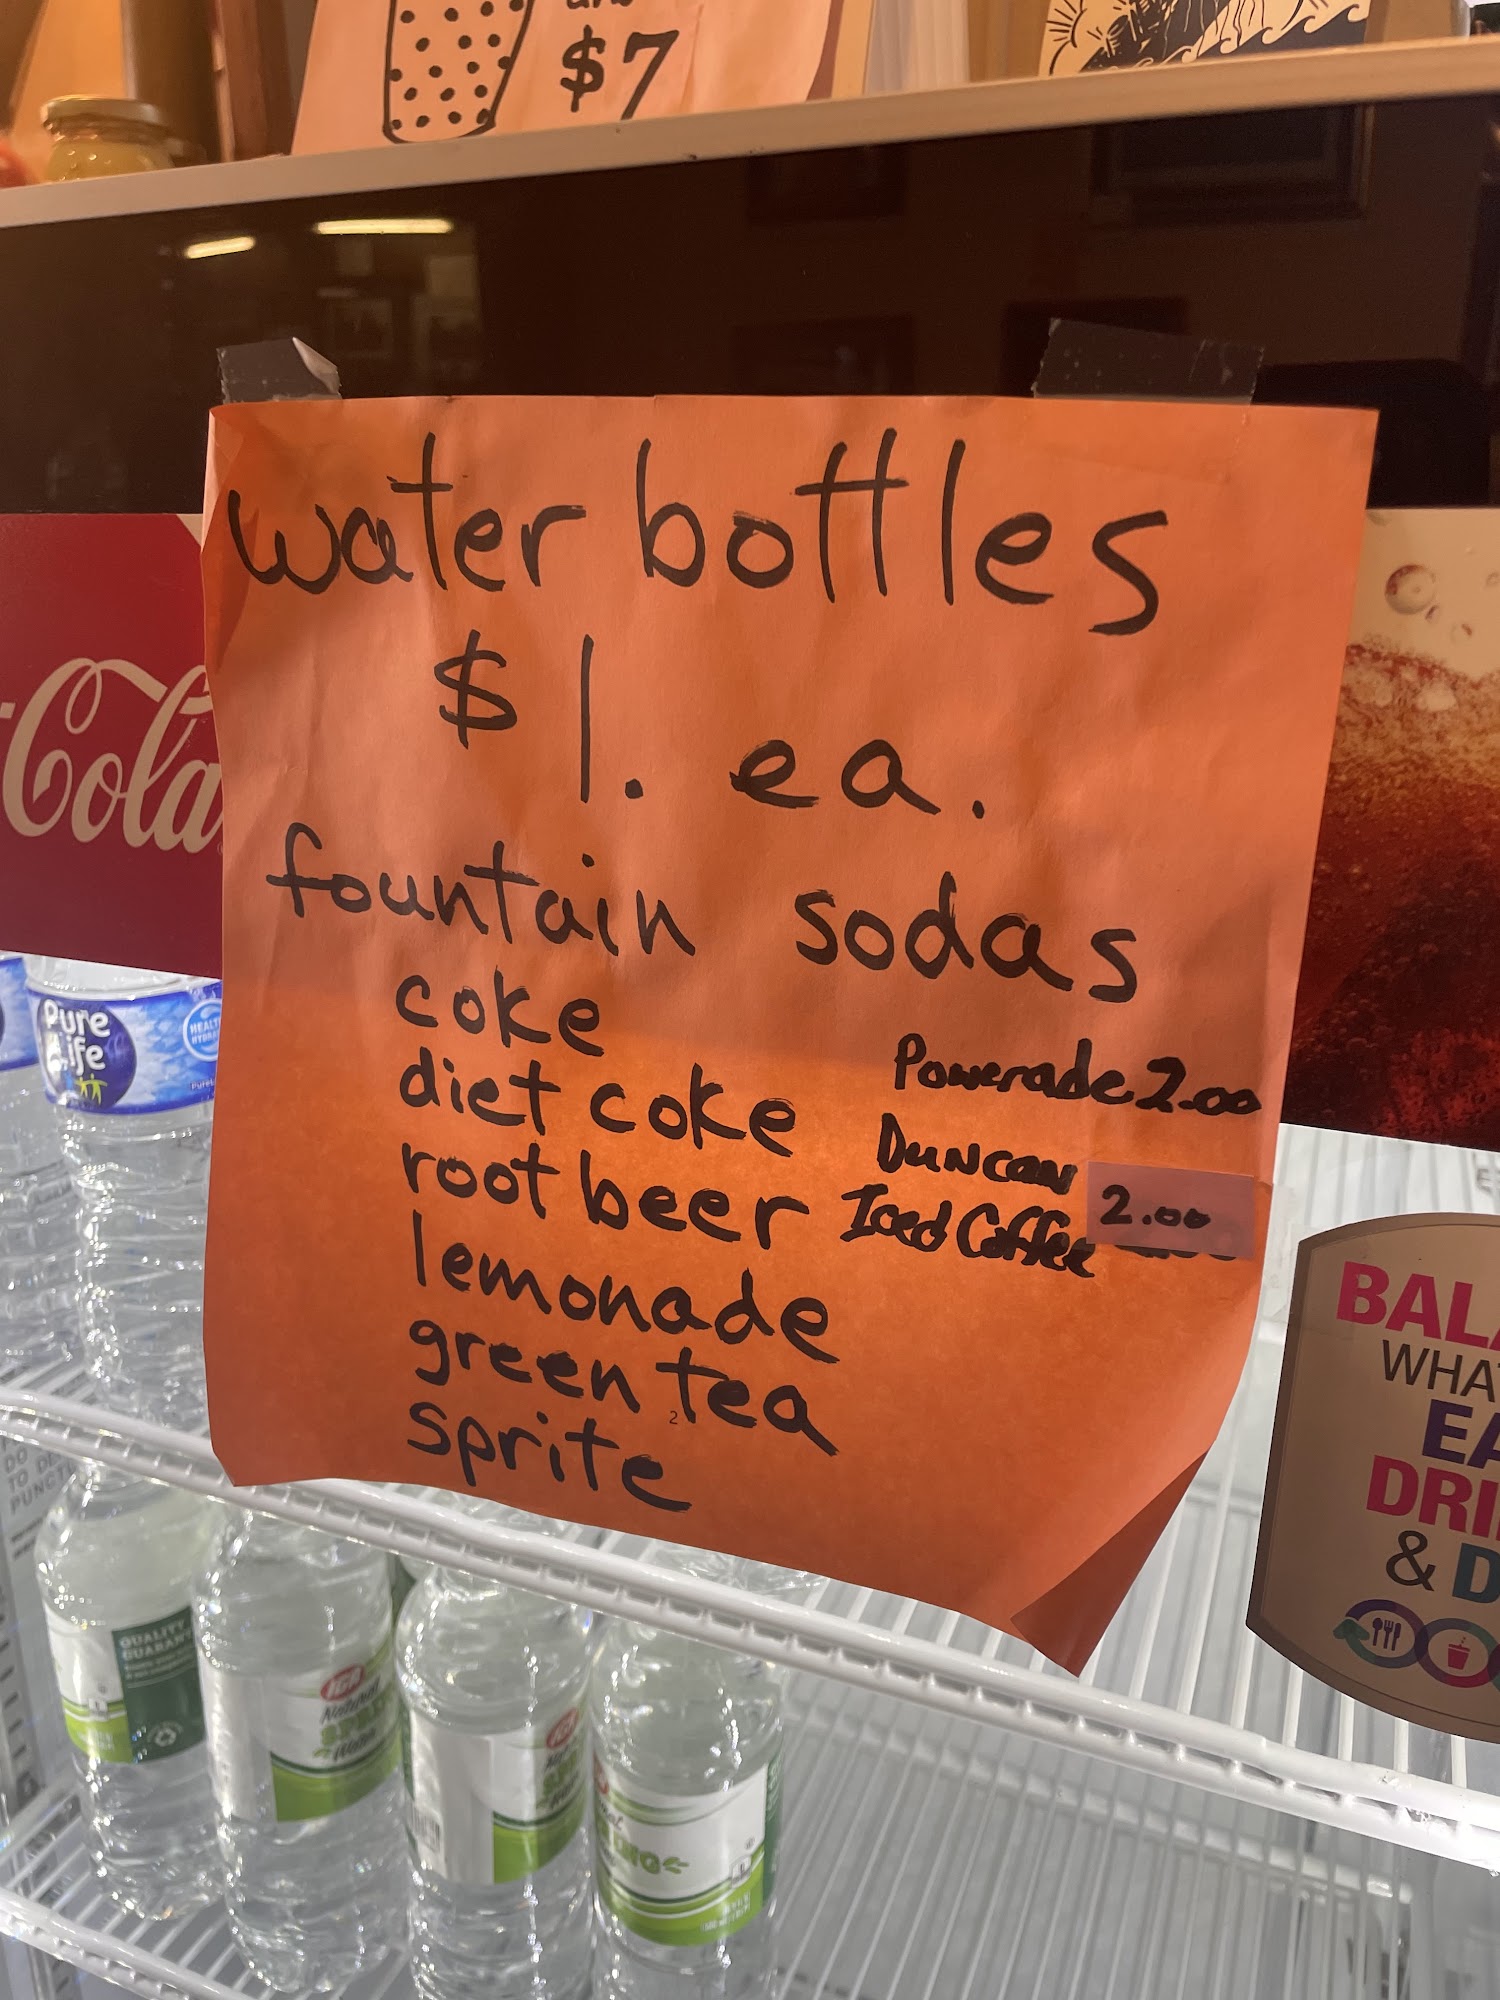 $7
water bottles
$1. ea.
fountain sodas
coke
diet coke
root beer
lemonade
green tea
sprite
Powerade 2.00
Duncan
Iced Coffee 2.00
2
Cola
Pure
Life
QUALITY
IGA
Natural
Water
BAL
WHAT
EA
DRI
& D